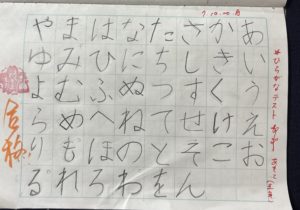 7.10.20 月
ひらがなテスト
あいうえお
かきくけこ
さしすせそ
たちつてと
なにぬねの
はひふへほ
まみむめも
やゆよらり
るれろわをん
合格